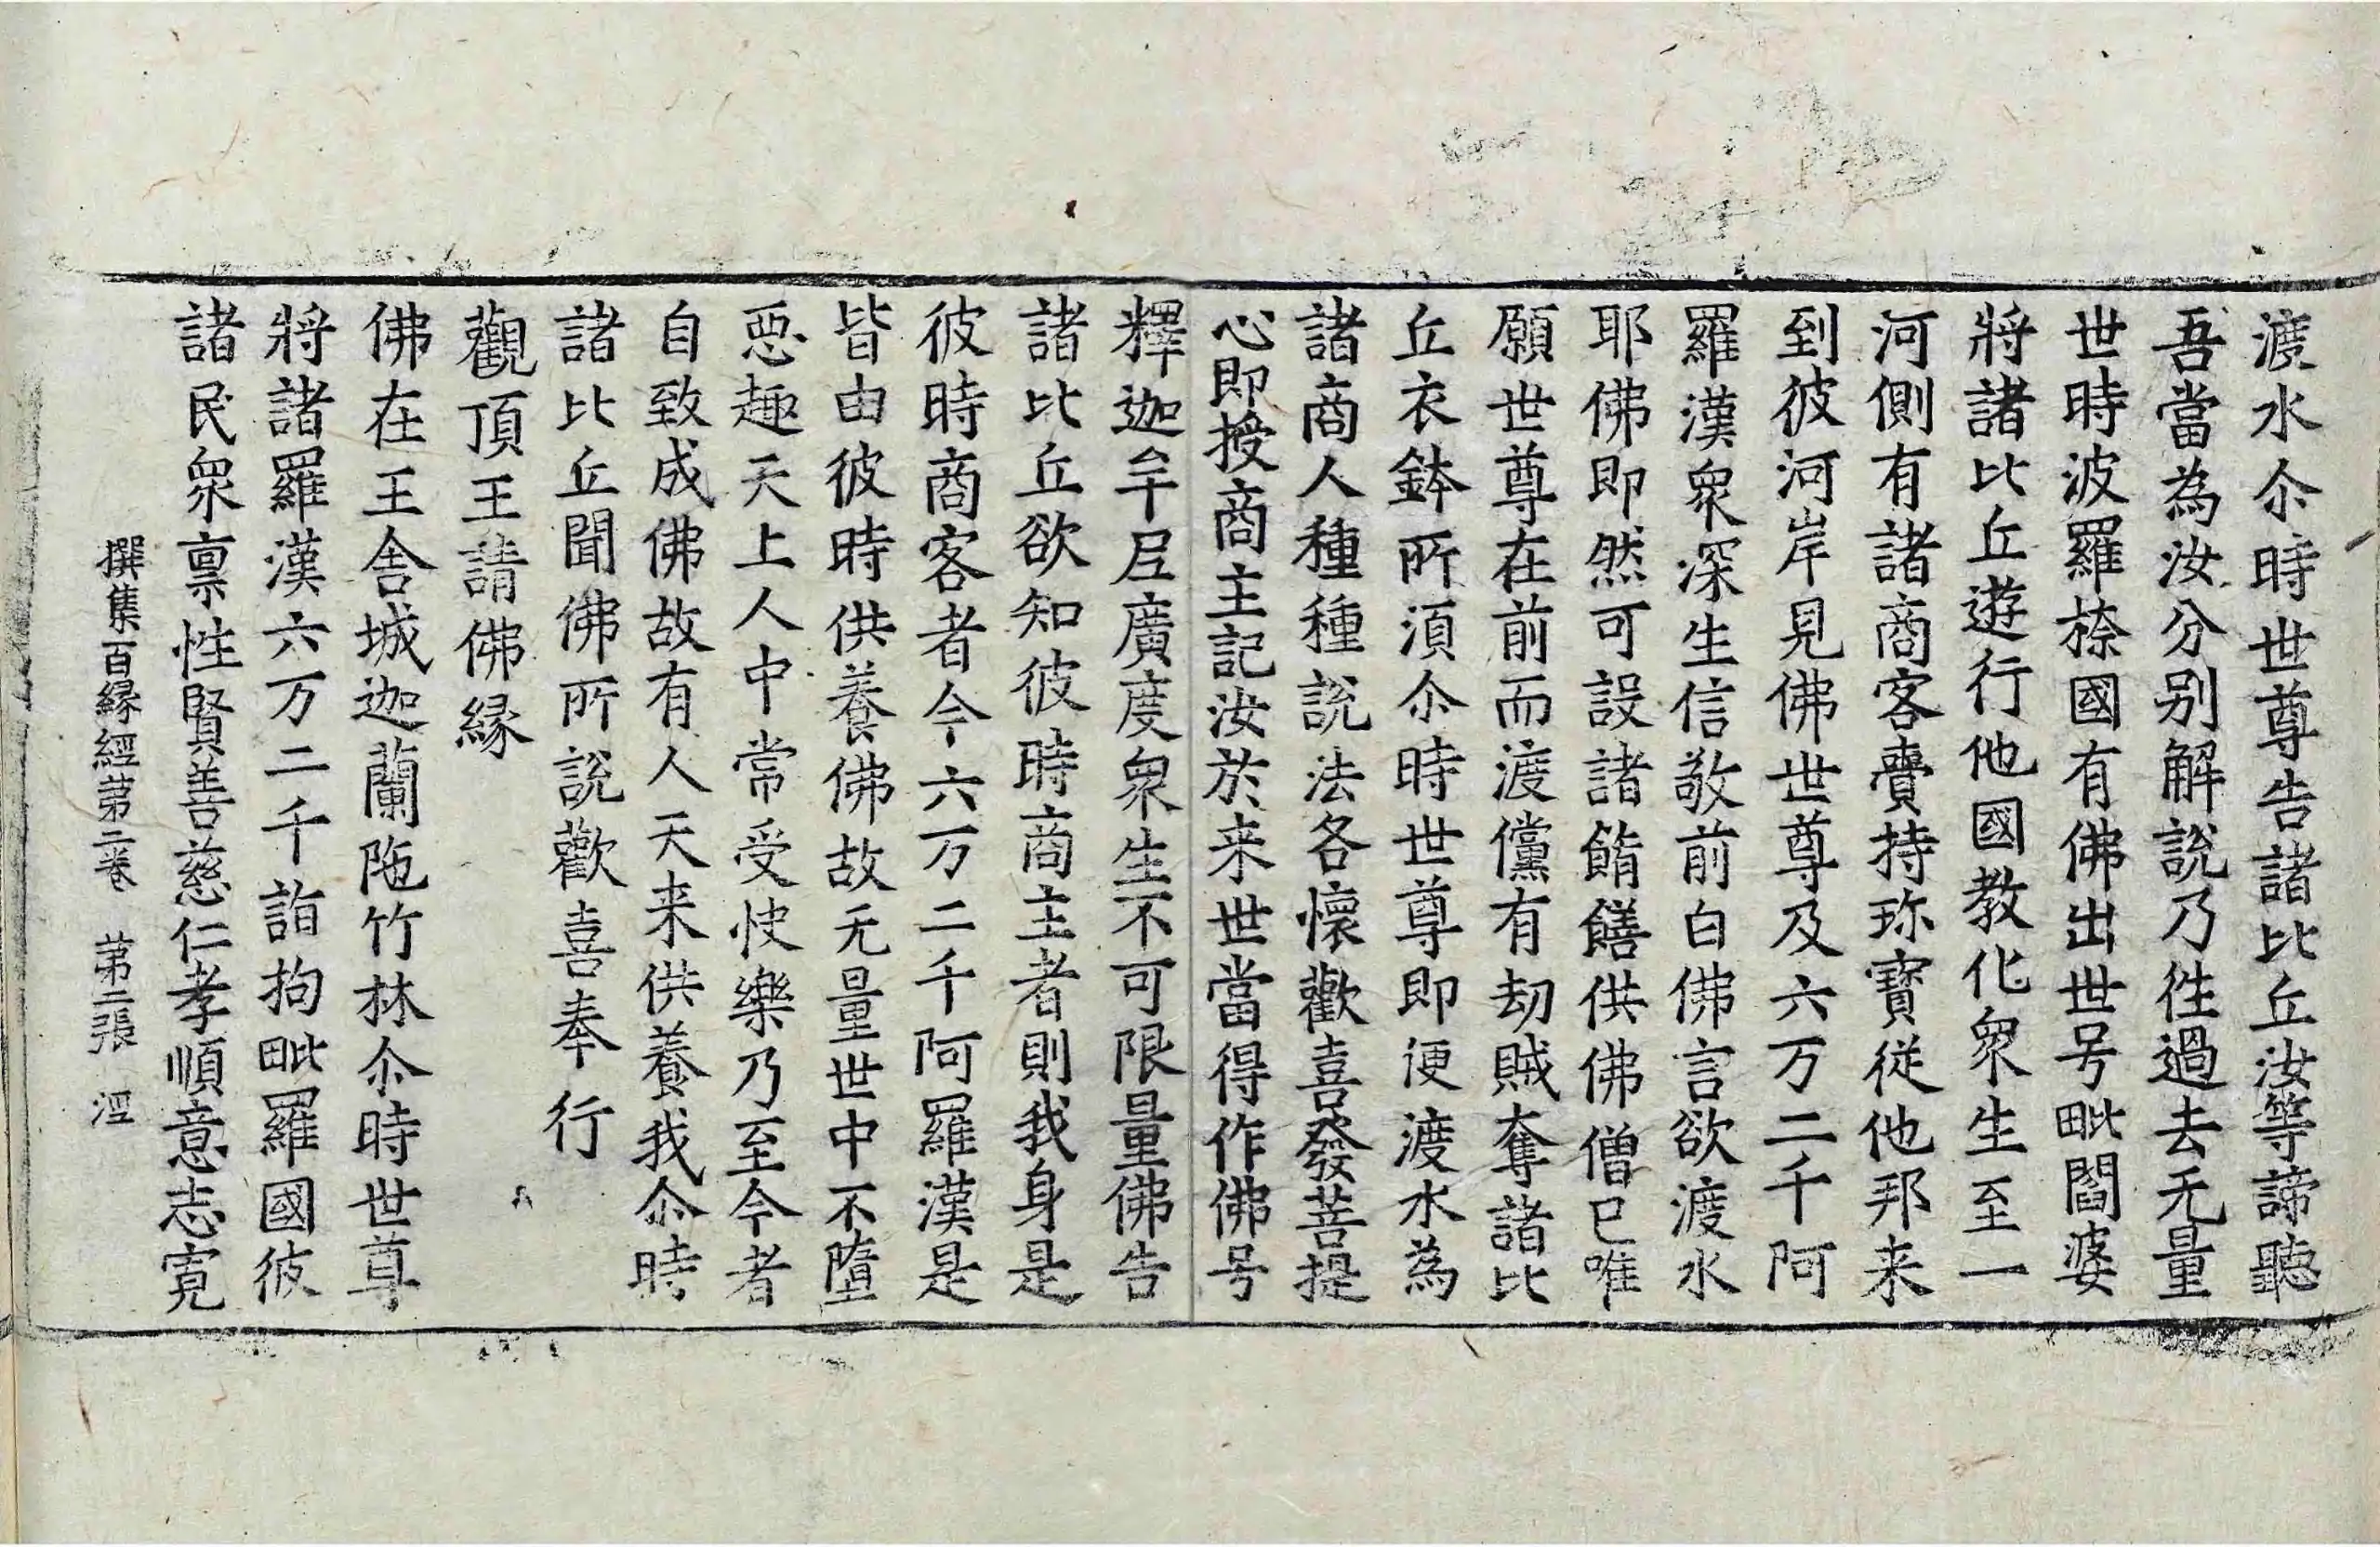 渡水尒時世尊告諸比丘汝等諦聽
吾當為汝分别解說乃徃過去无量
世時波羅㮈國有佛出世号毗閻婆
將諸比丘遊行他國教化衆生至一
河側有諸商客賷持珎寶從他邦来
到彼河岸見佛世尊及六万二千阿
羅漢衆深生信敬前白佛言欲渡水
耶佛即然可設諸餚饍供佛僧已唯
願世尊在前而渡儻有劫賊奪諸比
丘衣鉢所湏尒時世尊即便渡水為
諸商人種種說法各懷歡喜發菩提
心即授商主記汝於来世當得作佛号
釋迦牟尼廣度衆生不可限量佛告
諸比丘欲知彼時商主者則我身是
彼時商客者今六万二千阿羅漢是
皆由彼時供養佛故无量世中不墮
惡趣天上人中常受快樂乃至今者
自致成佛故有人天来供養我尒時
諸比丘聞佛所說歡喜奉行
觀頂王請佛縁
佛在王舍城迦蘭陁竹林尒時世尊
將諸羅漢六万二千詣拘毗羅國彼
諸民衆禀性賢善慈仁孝順意志寬
撰集百縁經苐二卷　苐二張　涇